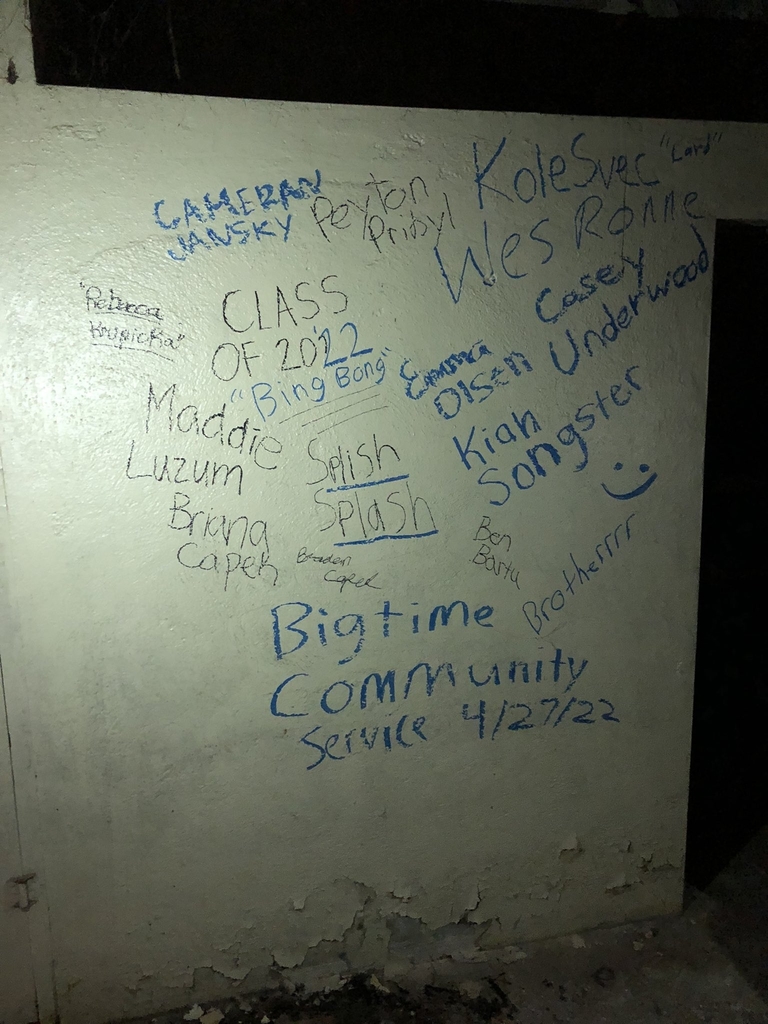 Kole Svec "Lard"
CAMERAN
JANSKY
Peyton
Pribyl
Wes Ronne
"Rebecca
Krupicka"
CLASS
OF 2022
"Bing Bong"
Casey
Underwood
Emma
Olsen
Maddie
Luzum
Splish
Splash
Kiah
Songster
Briana
Capek
Braden
Capek
Ben
Bartu
Brotherrrr
Bigtime
Community
Service 4/27/22